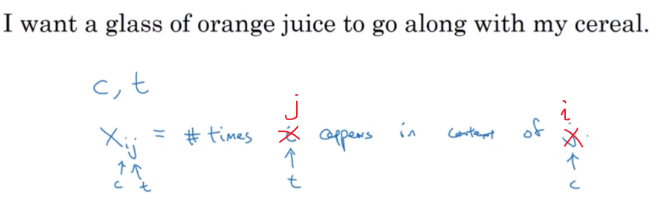 I want a glass of orange juice to go along with my cereal.
c, t
j i
Xij = # times i appears in context of j
c t t c